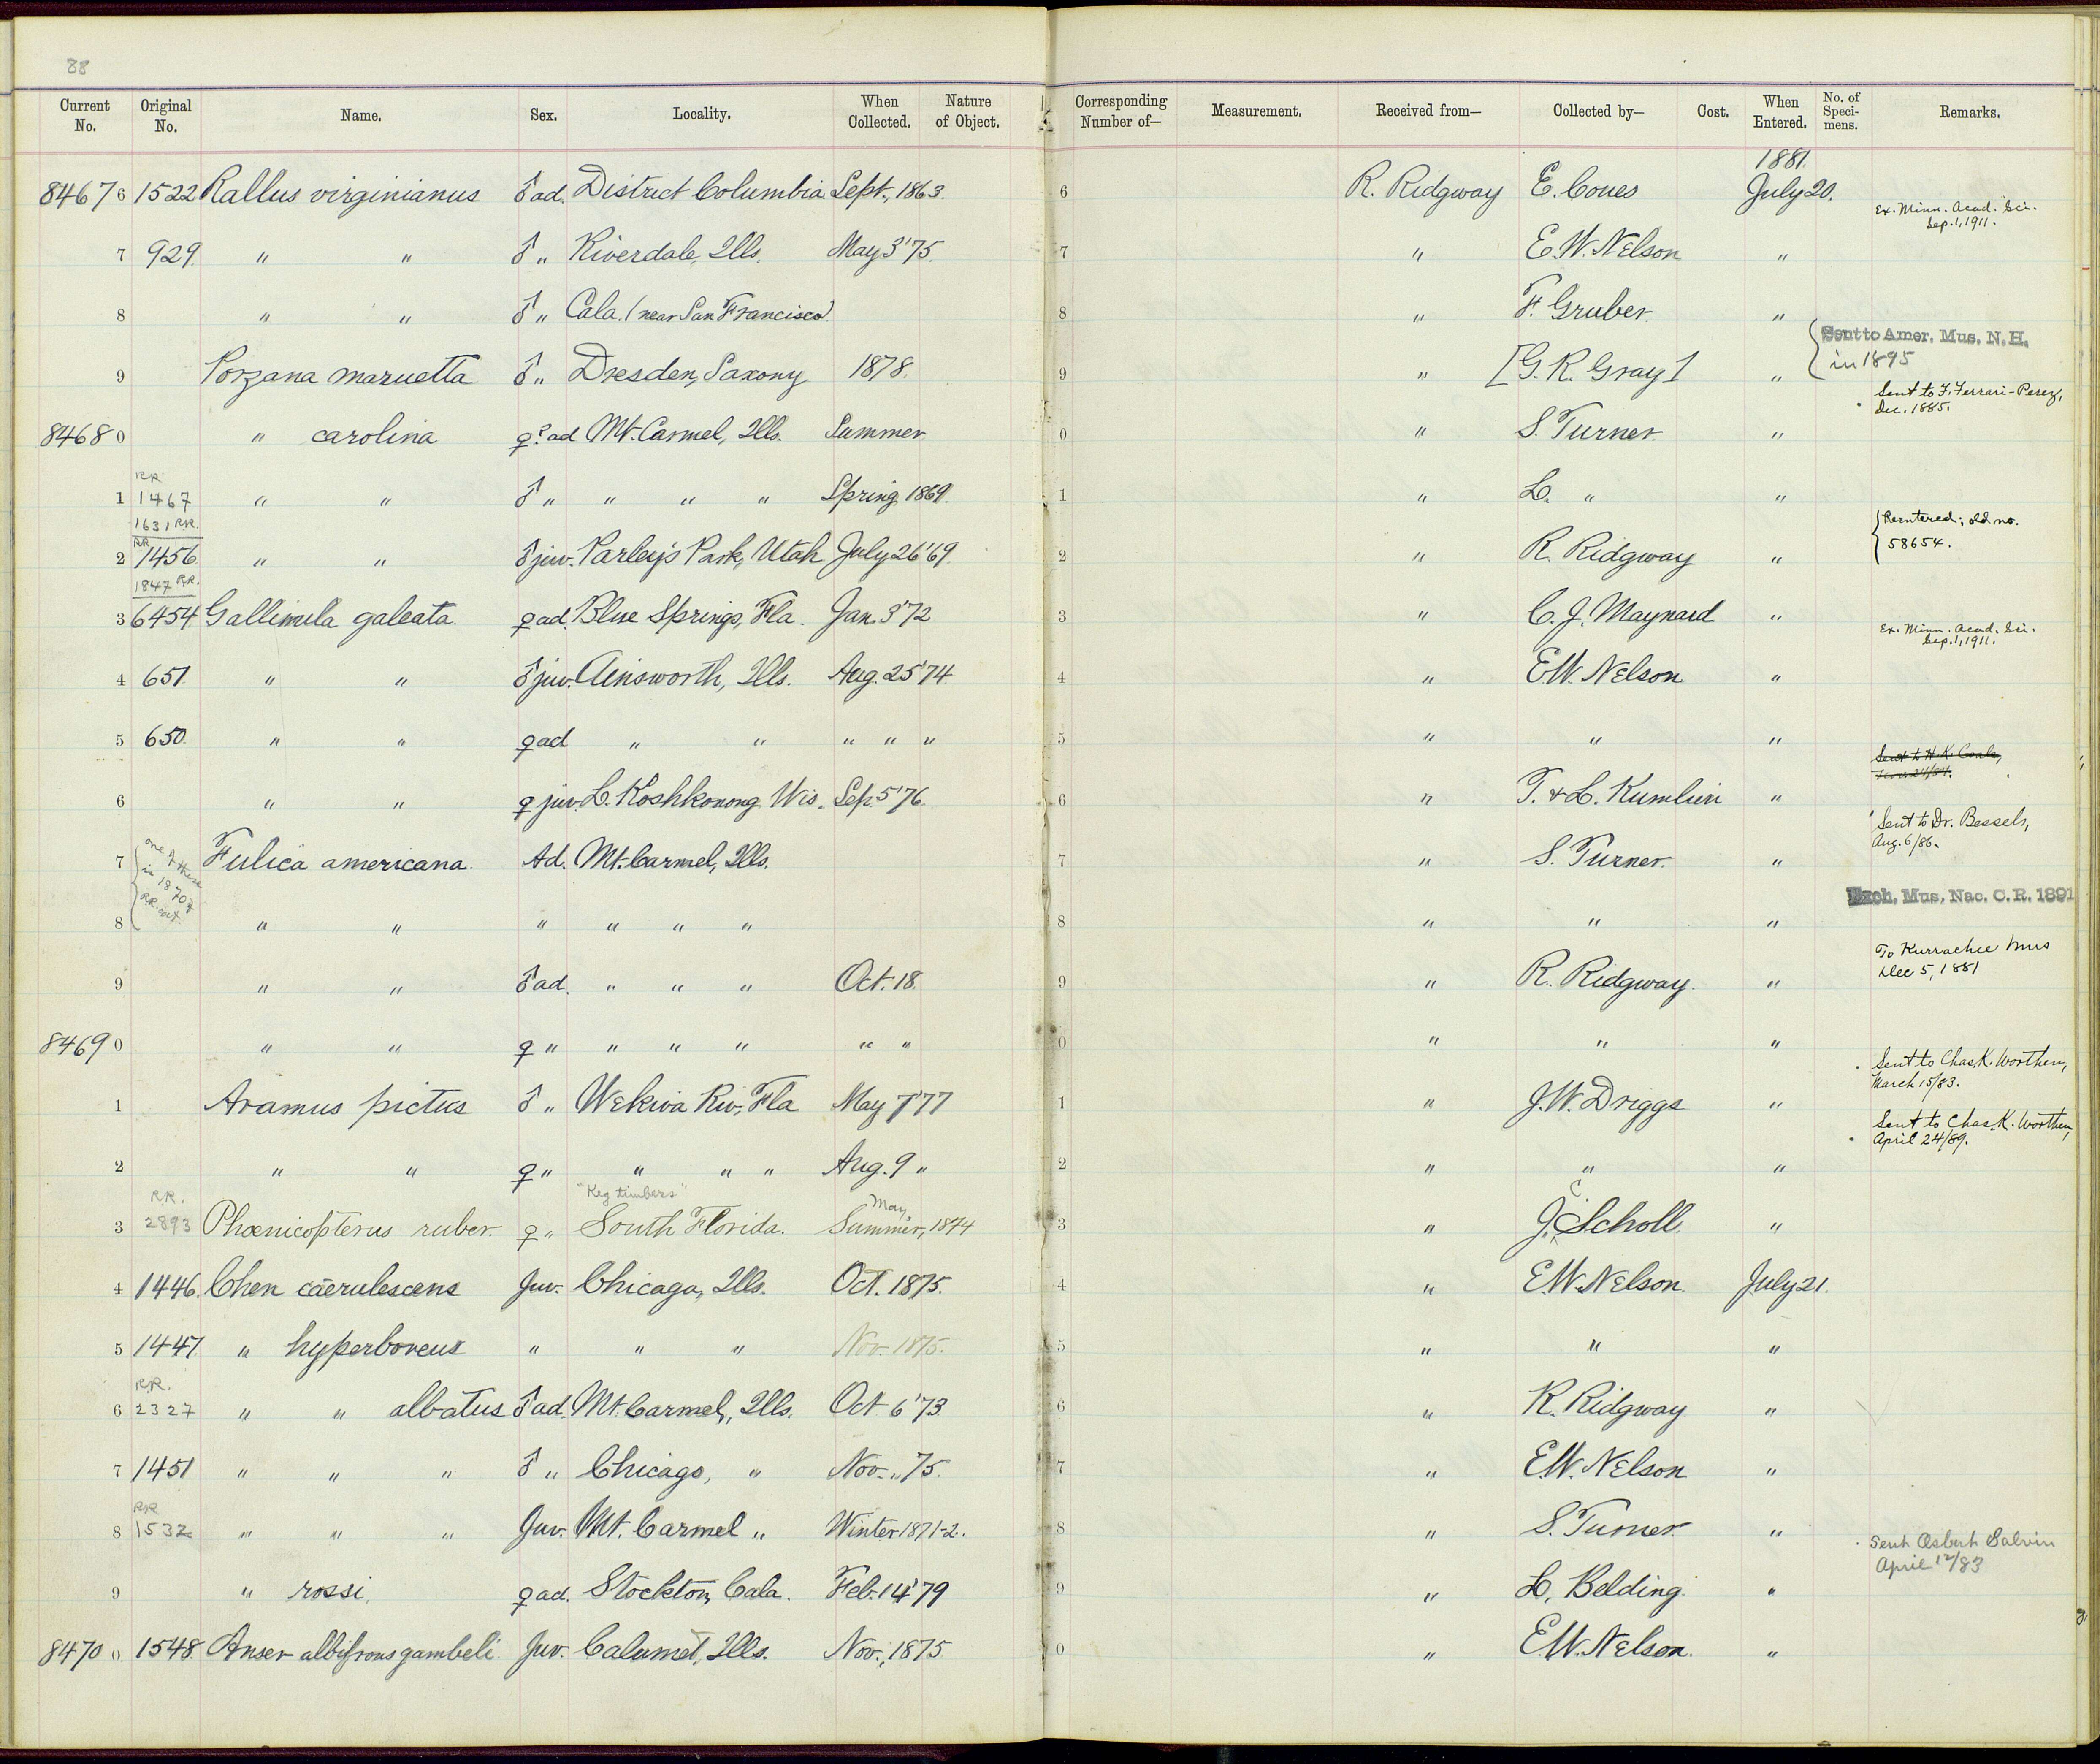 88
Current No. Original No. Name. Sex. Locality. When Collected. Nature of Object. Corresponding Number of— Measurement. Received from— Collected by— Cost. When Entered. No. of Speci-mens. Remarks.
1881.
84676 1522 Rallus virginianus ♂ ad. District Columbia Sept., 1863. 6 R. Ridgway E. Coues July 20.
Ex. Minn. Acad. Sci. Sep. 1, 1911.
7 929. " " ♂ " Riverdale, Ills. May 3'75. 7 " E. W. Nelson "
8 " " ♂ " Cala. (near San Francisco) 8 " F. Gruber "
{ Sent to Amer. Mus. N. H. in 1895
9 Porzana maruetta ♂ " Dresden, Saxony 1878. 9 " [G. R. Gray] "
Sent to F. Ferrari-Perez, Dec. 1885.
84680 " carolina ♀? ad Mt. Carmel, Ills. Summer 0 " S. Turner "
RR
1 1467 " " ♂ " " " " Spring 1869. 1 " L. " "
1631 RR.
RR
{ Reentered; old no. 58654.
2 1456 " " ♂ juv. Parley's Park, Utah July 26'69. 2 " R. Ridgway "
1847 RR.
3 6454 Gallinula galeata ♀ ad. Blue Springs, Fla. Jan. 3'72 3 " C. J. Maynard "
Ex. Minn. Acad. Sci. Sep. 1, 1911.
4 651. " " ♂ juv. Ainsworth, Ills. Aug. 25'74 4 " E.W. Nelson "
5 650. " " ♀ ad " " " " " 5 " " "
Sent to H. K. Coale,
6 " " ♀ juv. L. Koshkonong Wis. Sep. 5'76. 6 " T. & L. Kumlien "
Sent to Dr. Bessels, Aug. 6/86.
{ one of these in 1870 of RR. cat.
7 Fulica americana. Ad. Mt. Carmel, Ills. 7 " S. Turner. "
Exch. Mus. Nac. C. R. 1891
8 " " " " " " 8 " " "
To Kurrachee Mus Dec 5, 1881
9 " " ♂ ad. " " " Oct. 18. 9 " R. Ridgway. "
84690 " " ♀ " " " " " " 0 " " "
Sent to Chas. K. Worthen, March 15/83.
1 Aramus pictus ♂ " Wekiva Riv., Fla May 7'77 1 " J. W. Driggs "
Sent to Chas. K. Worthen, April 24/89.
2 " " ♀ " " " " Aug. 9 " 2 " " "
RR. "Keg timbers" May C
3 2893 Phœnicopterus ruber. ♀ " South Florida. Summer, 1874 3 " J. Scholl. "
4 1446. Chen cærulescens Juv. Chicago, Ills. Oct. 1875. 4 " E.W. Nelson. July 21.
5 1447. " hyperboreus " " " Nov. 1875. 5 " " "
RR.
6 2327 " " albatus ♂ ad. Mt. Carmel, Ills. Oct 6'73 6 " R. Ridgway "
7 1451 " " " ♂ " Chicago, " Nov. "75. 7 " E.W. Nelson "
RR
8 1532 " " " Juv. Mt. Carmel " Winter 1871-2. 8 " S. Turner. "
Sent Osbert Salvin April 12/83
9 " rossi. ♀ ad. Stockton, Cala. Feb. 14'79 9 " L. Belding. "
84700 1548. Anser albifrons gambeli Juv. Calumet, Ills. Nov., 1875 0 " E.W. Nelson. "